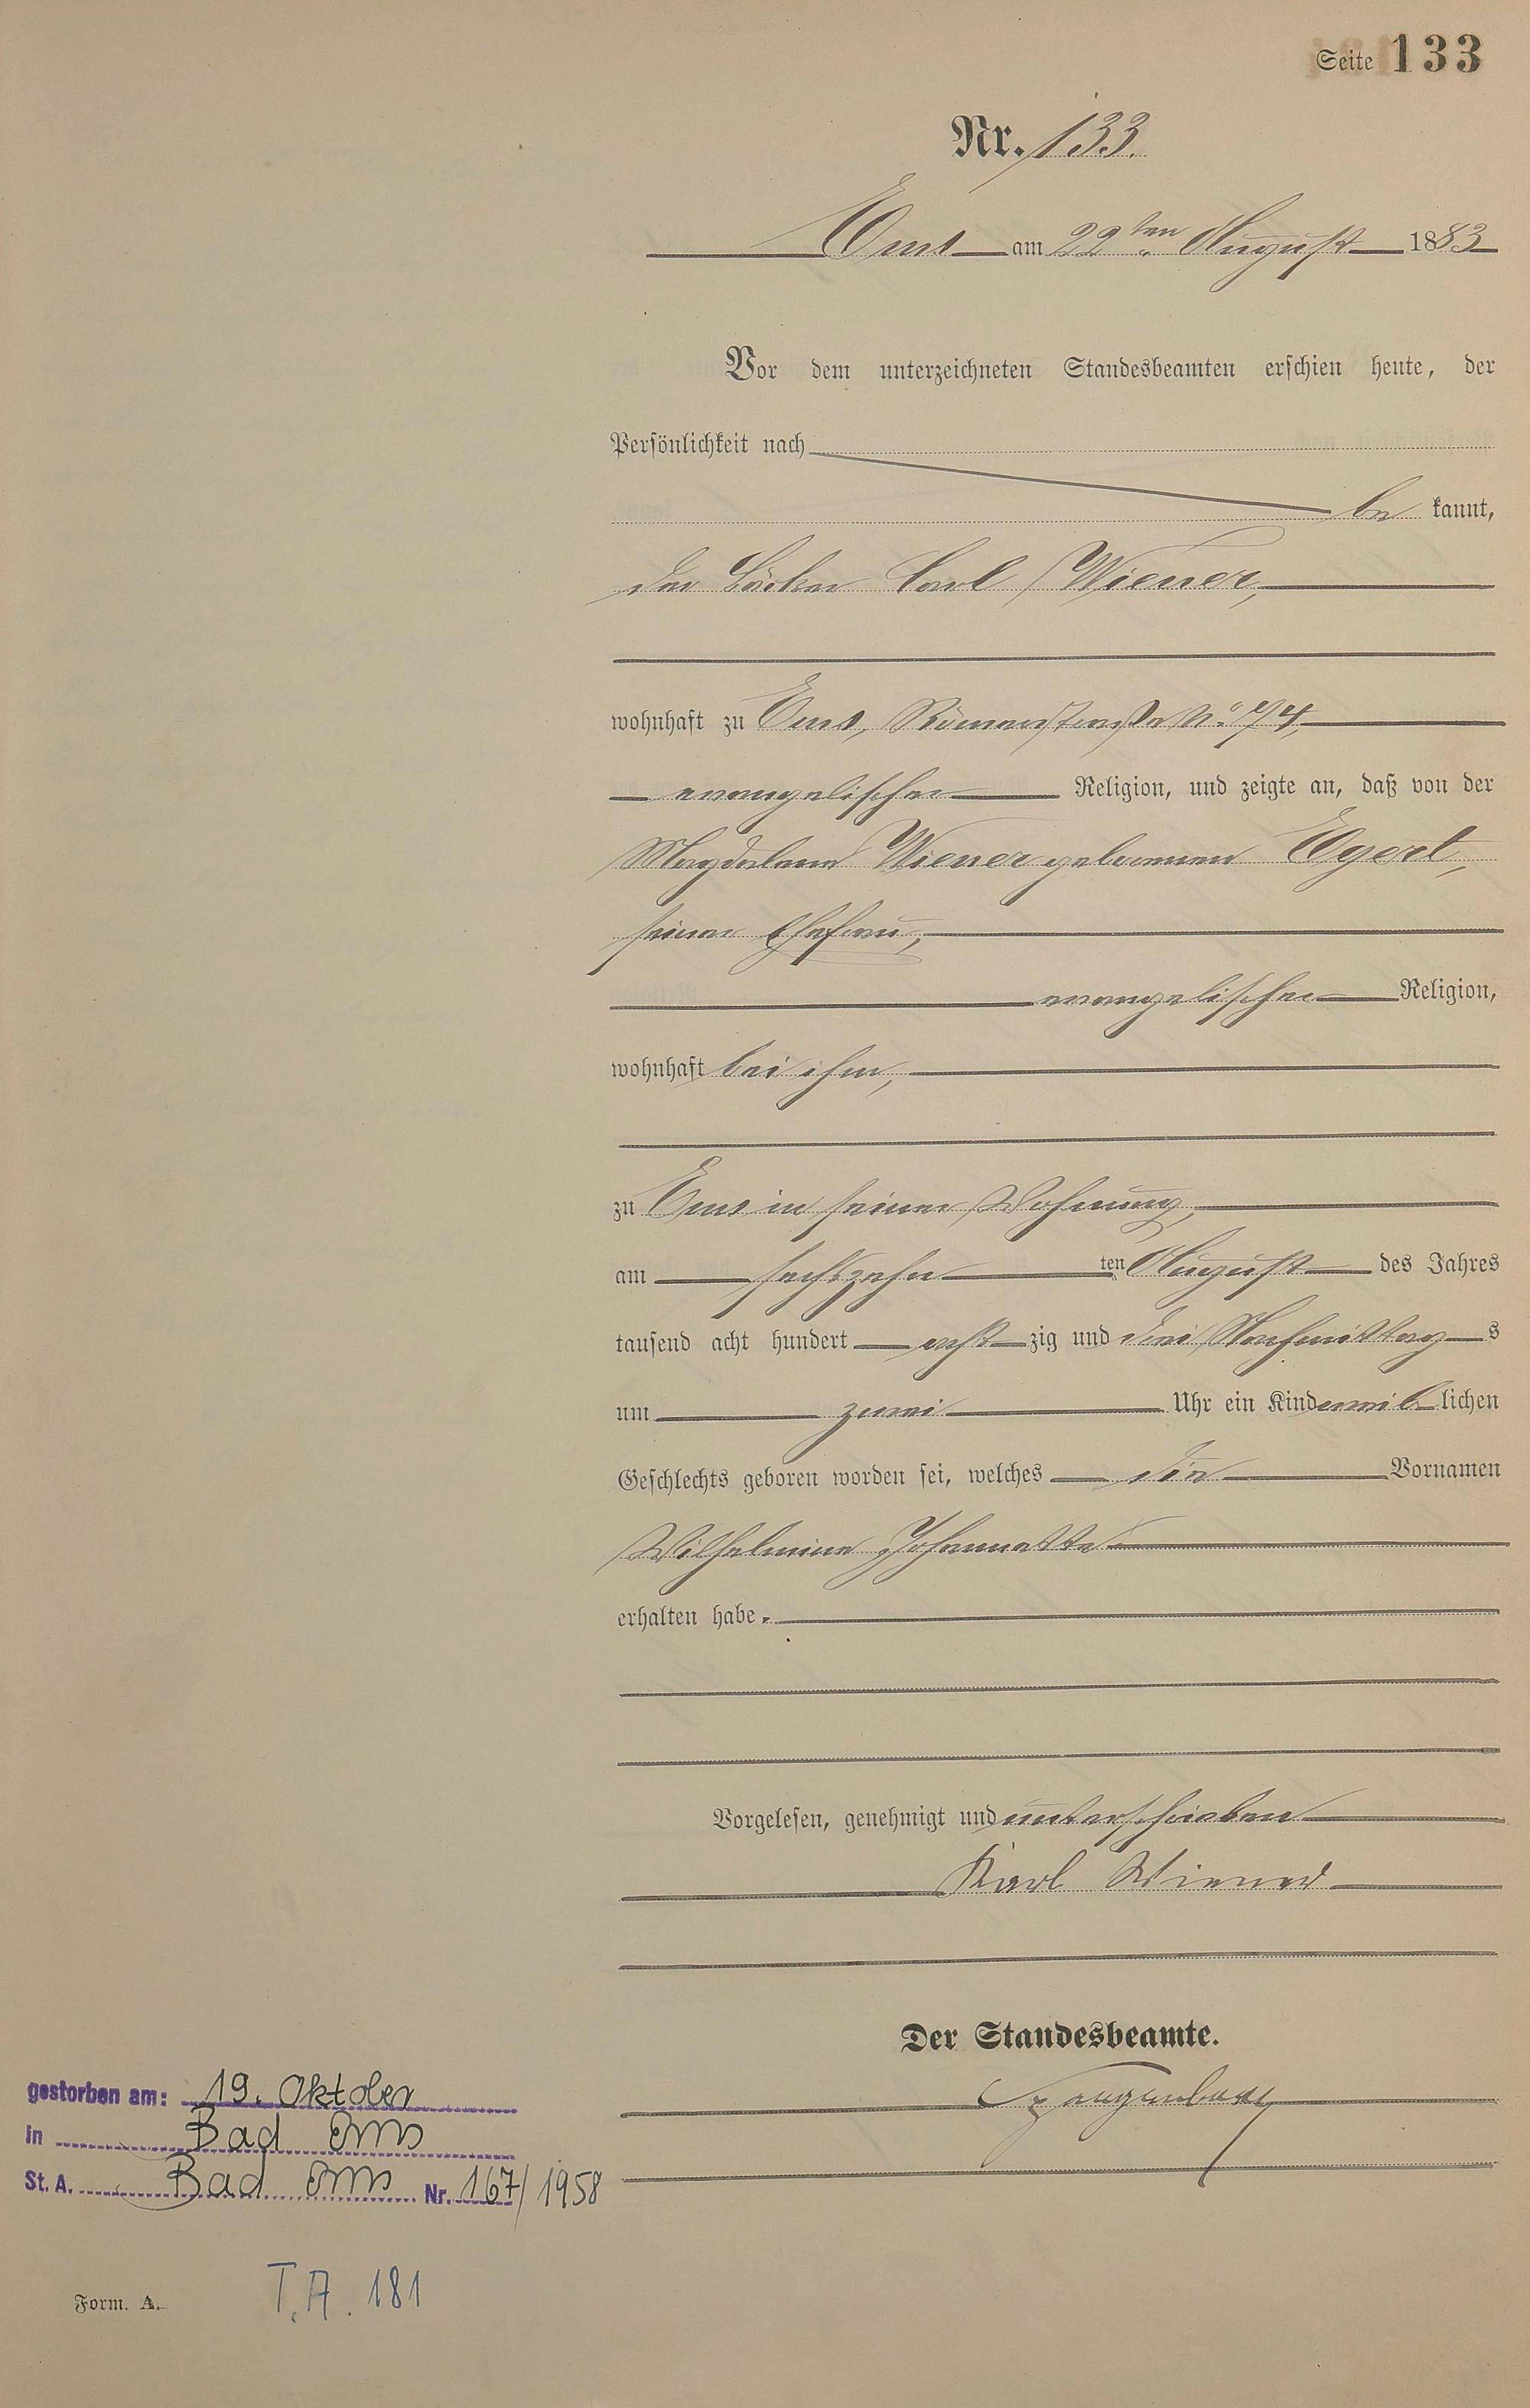 Seite 133
Nr. 133.
Ems am 22ten August 1883
Vor dem unterzeichneten Standesbeamten erschien heute, der
Persönlichkeit nach
be kannt,
der Bäcker Carl Wiener,
wohnhaft zu Ems, Römerstraße No. 74,
evangelischer Religion, und zeigte an, daß von der
Magdalena Wiener geborenen Egert,
seiner Ehefrau,
evangelischer Religion,
wohnhaft bei ihm,
zu Ems in seiner Wohnung,
am sechszehn ten August des Jahres
tausend acht hundert acht zig und drei Nachmittag s
um zwei Uhr ein Kind weib lichen
Geschlechts geboren worden sei, welches die Vornamen
Wilhelmine Johannette
erhalten habe.
Vorgelesen, genehmigt und unterschrieben
Karl Wiener
Der Standesbeamte.
gestorben am: 19. Oktober
in Bad Ems
St. A. Bad Ems Nr. 167/1958
T. A. 181
Form. A.